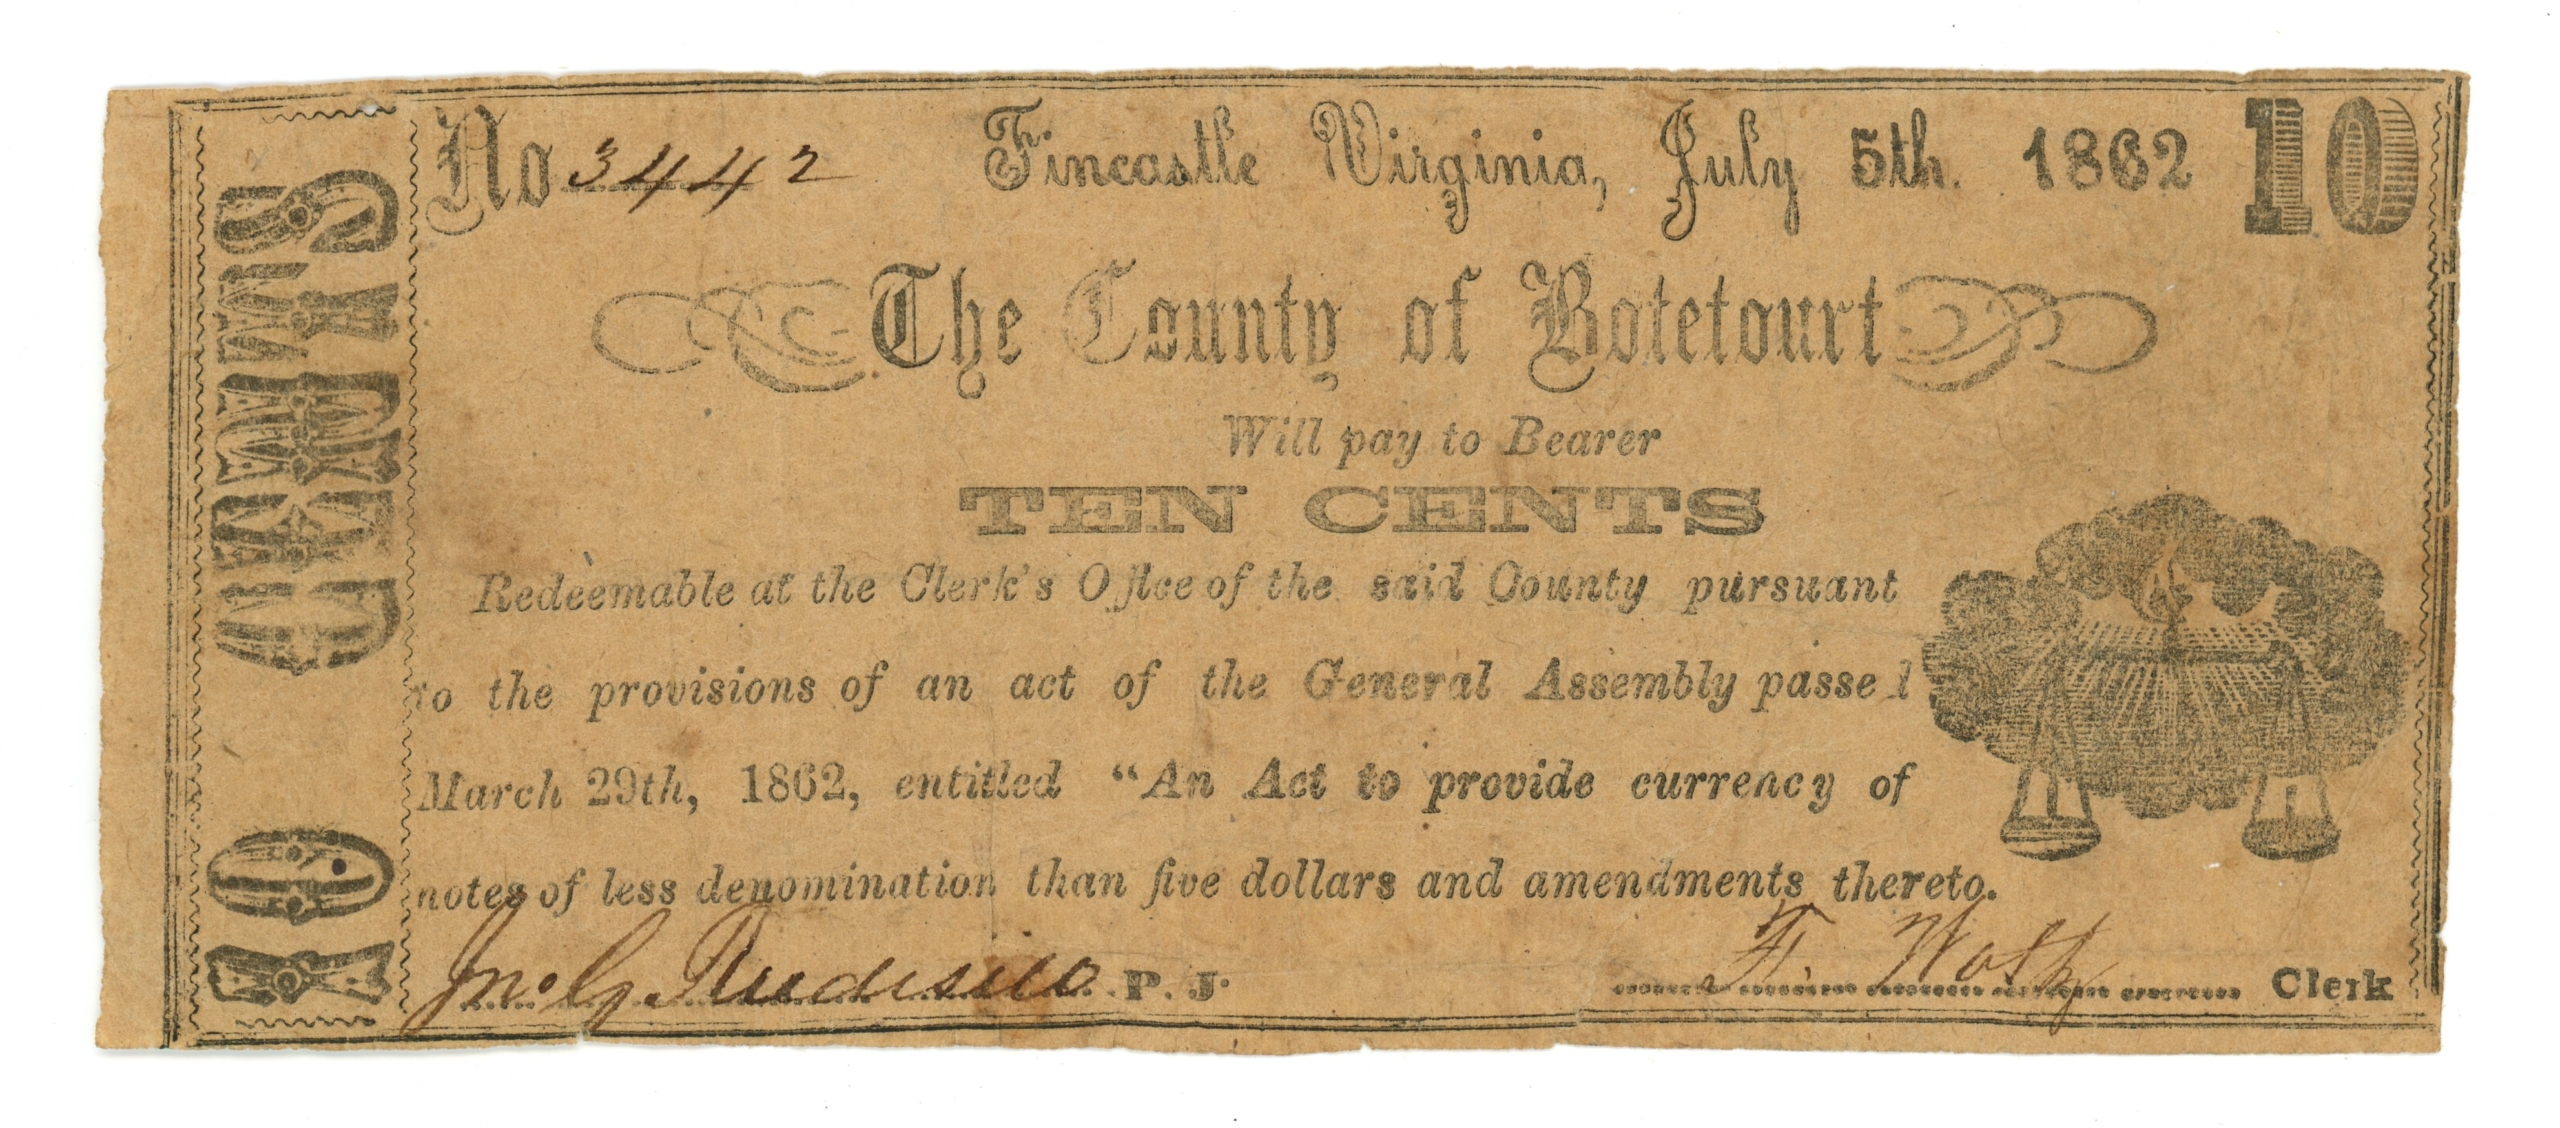 No 3442 Fincastle Virginia, July 5th. 1862 10
10 CENTS
The County of Botetourt
Will pay to Bearer
TEN CENTS
Redeemable at the Clerk's Office of the said County pursuant
to the provisions of an act of the General Assembly passed
March 29th, 1862, entitled "An Act to provide currency of
notes of less denomination than five dollars and amendments thereto.
P. J. Clerk